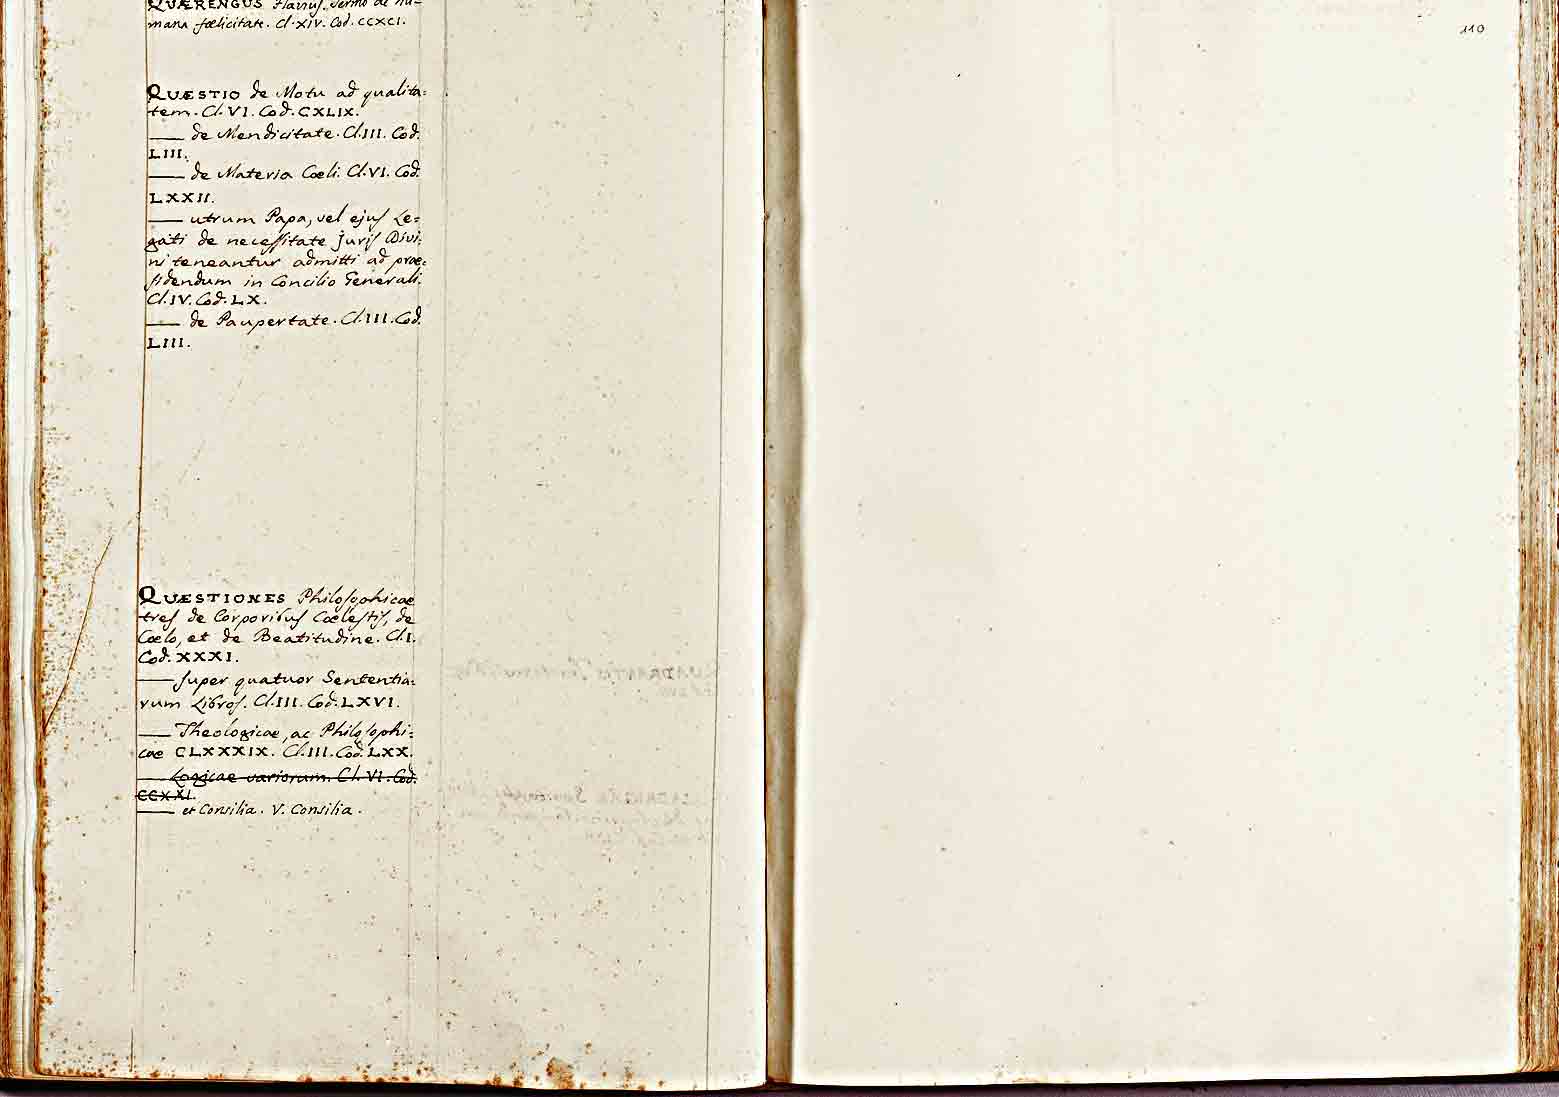 QUÆRENGUS Flavius. Sermo de hu-
mana fœlicitate. Cl. XIV. Cod. CCXCI.
QUÆSTIO de Motu ad qualita=
tem. Cl. VI. Cod. CXLIX.
—— de Mendicitate. Cl. III. Cod.
LIII.
—— de Materia Cœli. Cl. VI. Cod.
LXXII.
—— utrum Papa, vel ejus Le=
gati de necessitate juris Divi=
ni teneantur admitti ad præ=
sidendum in Concilio Generali.
Cl. IV. Cod. LX.
—— de Paupertate. Cl. III. Cod.
LIII.
QUÆSTIONES Philosophicæ
tres de Corporibus Cœlestis, de
Cœlo, et de Beatitudine. Cl. I.
Cod. XXXI.
—— super quatuor Sententia=
rum Libros. Cl. III. Cod. LXVI.
—— Theologicæ, ac Philosophi=
cæ CLXXXIX. Cl. III. Cod. LXX.
—— Logicae variorum. Cl. VI. Cod.
CCXXI.
—— et Consilia. V. Consilia.
110